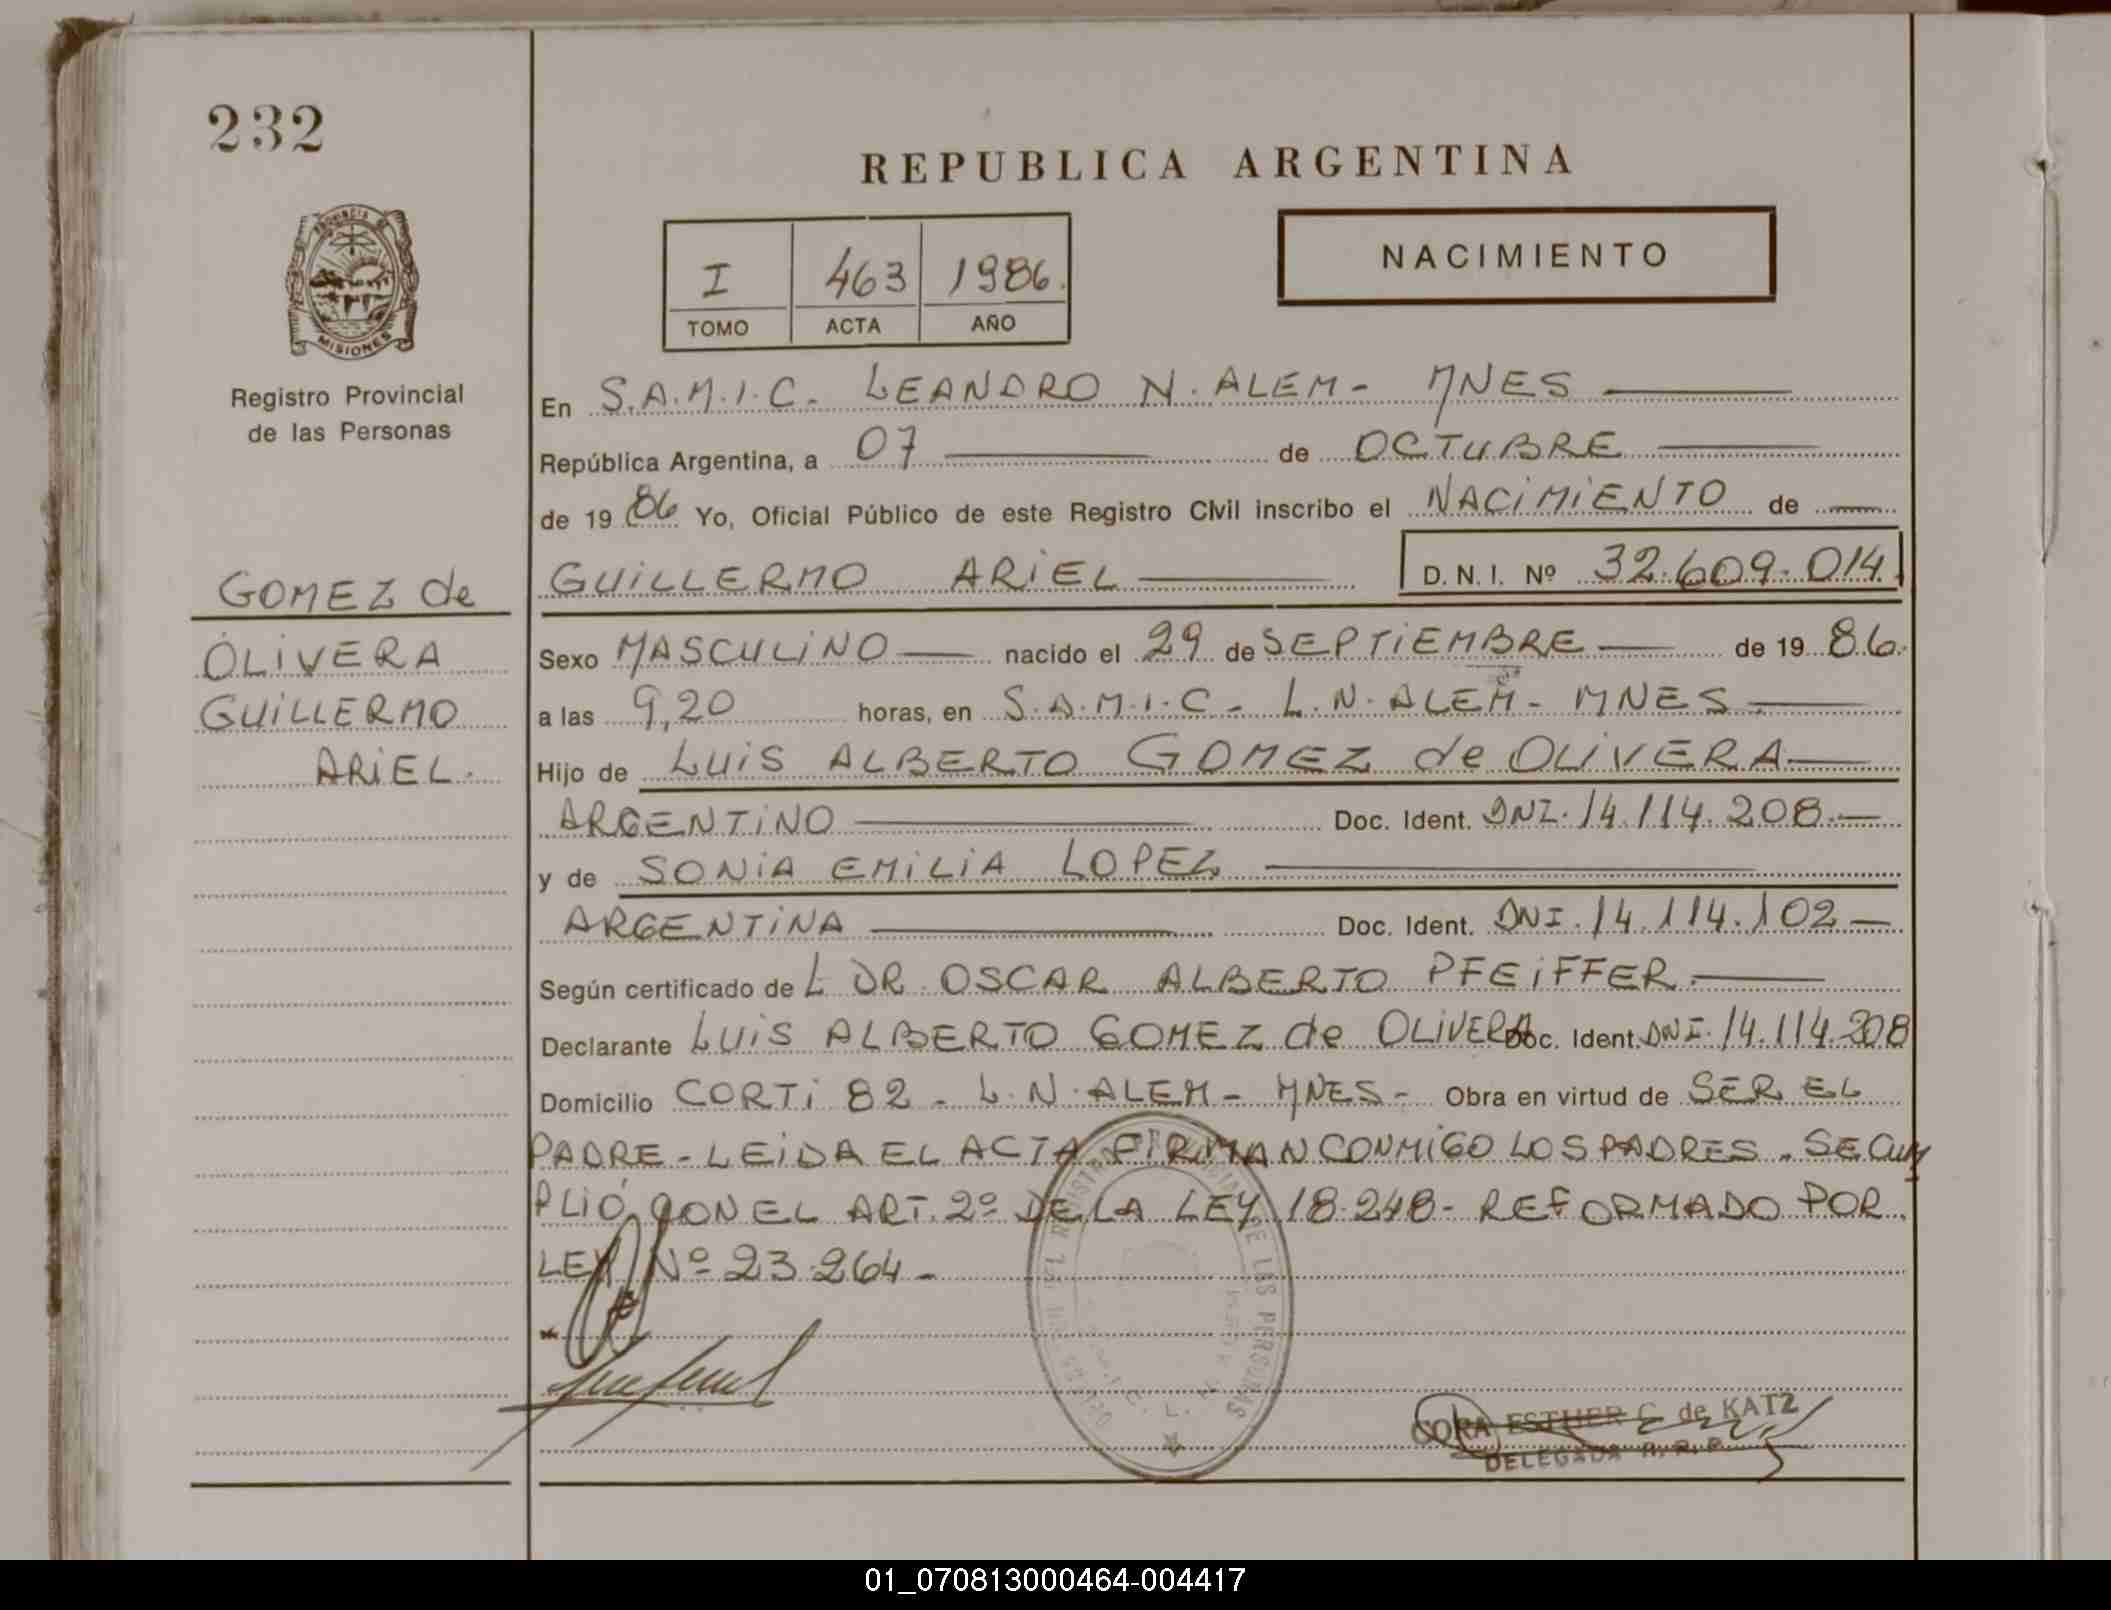 232
REPUBLICA ARGENTINA
PROVINCIA DE
MISIONES
Registro Provincial
de las Personas
I 463 1986.
TOMO ACTA AÑO
NACIMIENTO
En S.A.M.I.C. LEANDRO N. ALEM - MNES
República Argentina, a 07 de OCTUBRE
de 19 86 Yo, Oficial Público de este Registro Civil inscribo el NACIMIENTO de
GUILLERMO ARIEL D.N.I. Nº 32.609.014.
GOMEZ de
OLIVERA
GUILLERMO
ARIEL.
Sexo MASCULINO nacido el 29 de SEPTIEMBRE de 19 86.
a las 9,20 horas, en S.A.M.I.C - L.N. ALEM - MNES.
Hijo de LUIS ALBERTO GOMEZ de OLIVERA
ARGENTINO Doc. Ident. DNI. 14.114.208.
y de SONIA EMILIA LOPEZ
ARGENTINA Doc. Ident. DNI. 14.114.102
Según certificado de L DR. OSCAR ALBERTO PFEIFFER.
Declarante LUIS ALBERTO GOMEZ de OLIVERA Doc. Ident. DNI. 14.114.208
Domicilio CORTI 82 - L.N. ALEM - MNES - Obra en virtud de SER EL
PADRE - LEIDA EL ACTA FIRMAN CONMIGO LOS PADRES. SE CUM
PLIÓ CON EL ART. 2º DE LA LEY 18.248 - REFORMADO POR
LEY Nº 23.264 -
CORA ESTHER C. de KATZ
DELEGADA R. R. P.
01_070813000464-004417